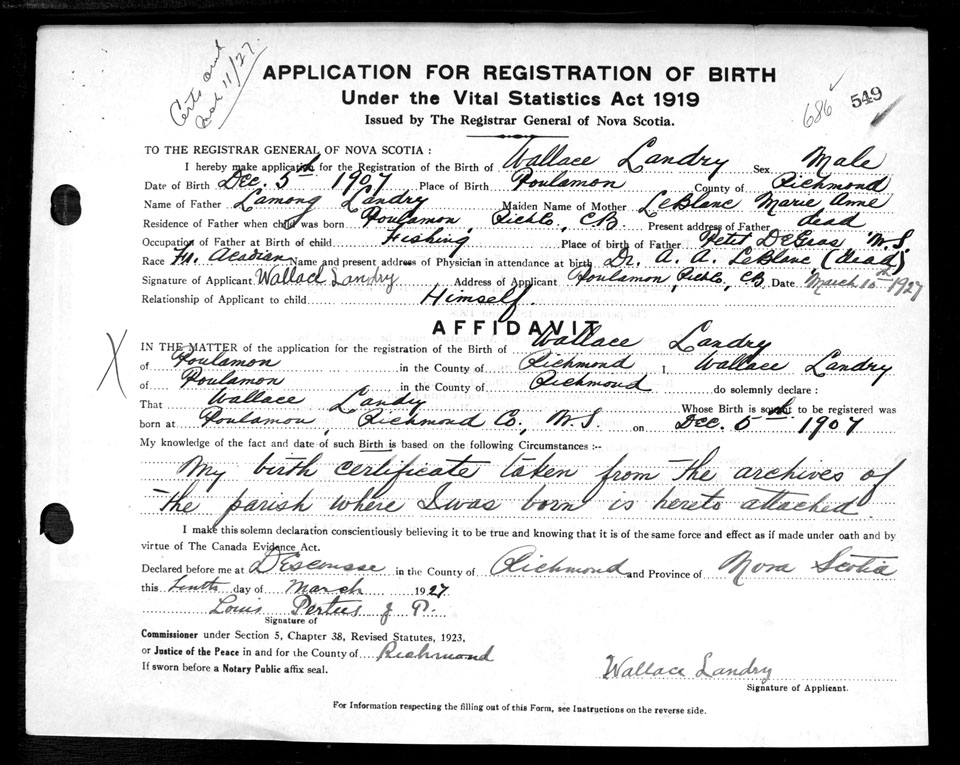 Certs and
March 11/27.
686 549
APPLICATION FOR REGISTRATION OF BIRTH
Under the Vital Statistics Act 1919
Issued by The Registrar General of Nova Scotia.
TO THE REGISTRAR GENERAL OF NOVA SCOTIA:
I hereby make application for the Registration of the Birth of Wallace Landry Sex Male
Date of Birth Dec. 5th 1907 Place of Birth Poulamon County of Richmond
Name of Father Lamong Landry Maiden Name of Mother LeBlanc Marie Anne
Residence of Father when child was born Poulamon, Rich Co., C.B. Present address of Father dead
Occupation of Father at Birth of child Fishing Place of birth of Father Petit DeGras N.S.
Race Fr. Acadian Name and present address of Physician in attendance at birth Dr. A. A. LeBlanc (dead)
Signature of Applicant Wallace Landry Address of Applicant Poulamon, Rich Co., C.B. Date March 10th 1927
Relationship of Applicant to child Himself.
AFFIDAVIT
IN THE MATTER of the application for the registration of the Birth of Wallace Landry
of Poulamon in the County of Richmond I, Wallace Landry
of Poulamon in the County of Richmond do solemnly declare:
That Wallace Landry Whose Birth is sought to be registered was
born at Poulamon, Richmond Co., N.S. on Dec. 5th 1907
My knowledge of the fact and date of such Birth is based on the following Circumstances:--
My birth certificate taken from the archives of
the parish where I was born is hereto attached.
I make this solemn declaration conscientiously believing it to be true and knowing that it is of the same force and effect as if made under oath and by
virtue of The Canada Evidence Act.
Declared before me at D'Escousse in the County of Richmond and Province of Nova Scotia
this tenth day of March 1927
Louis Pertus J. P.
Signature of
Commissioner under Section 5, Chapter 38, Revised Statutes, 1923,
or Justice of the Peace in and for the County of Richmond
If sworn before a Notary Public affix seal.
Wallace Landry
Signature of Applicant.
For Information respecting the filling out of this Form, see Instructions on the reverse side.